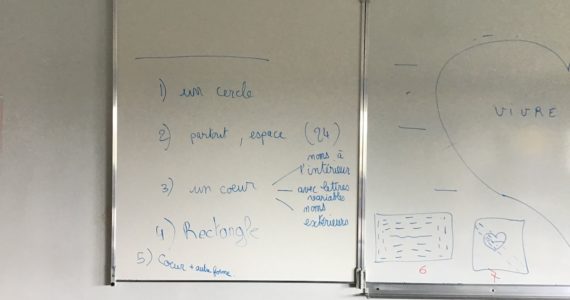 1) un cercle
2) partout, espace (24)
noms à
l'intérieur
3) un coeur
avec lettres
variable
noms
extérieurs
4) Rectangle
5) Coeur + autre forme
VIVRE
6
7